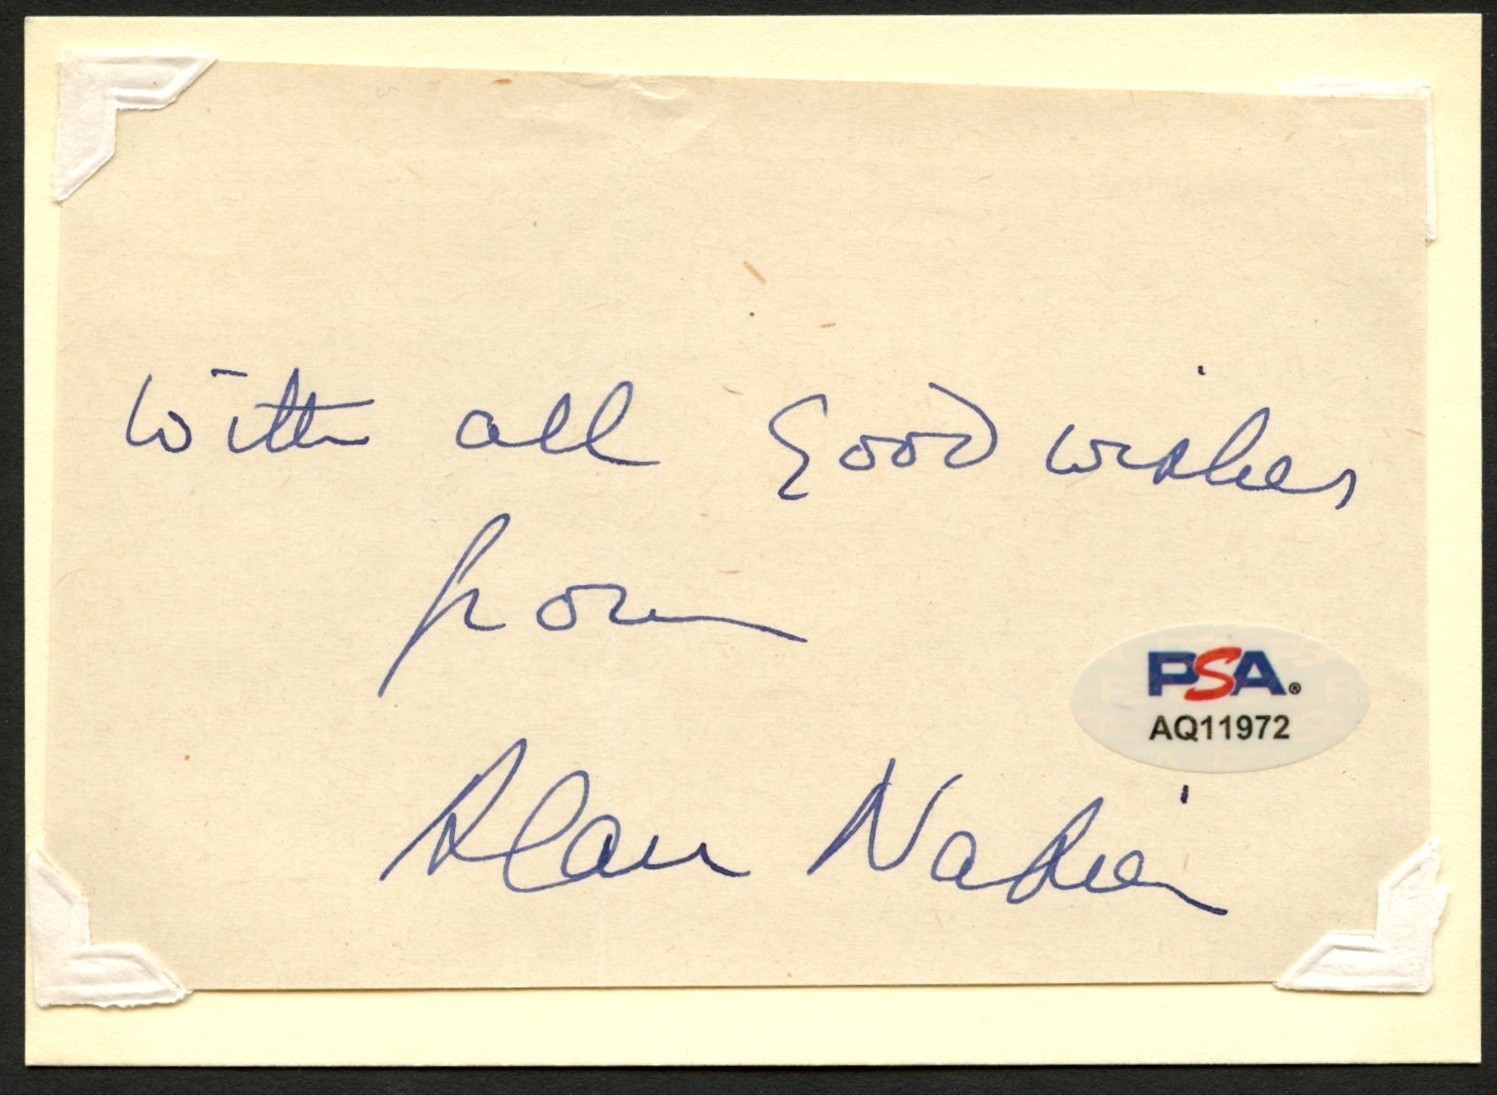 With all Good wishes
from
PSA®
AQ11972
Alan Napier